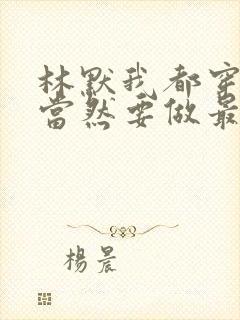 林默我都穿
當然要做最
楊晨